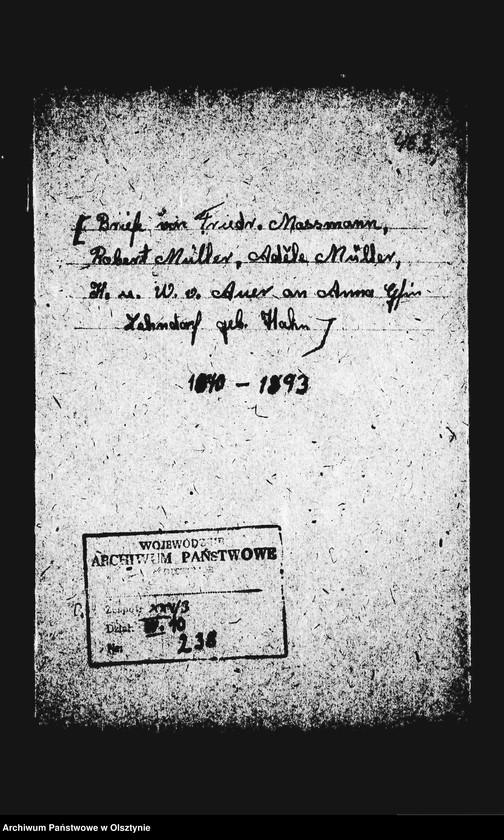 463
[ Briefe von Friedr. Massmann,
Robert Müller, Adèle Müller,
H. u. W. v. Auer an Anna Gfin
Lehndorf geb. Hahn ]
– 1893
WOJEWÓDZKIE
ARCHIWUM PAŃSTWOWE
Zespół: XXV/3
Dział: 10
Nr: 236
Archiwum Państwowe w Olsztynie